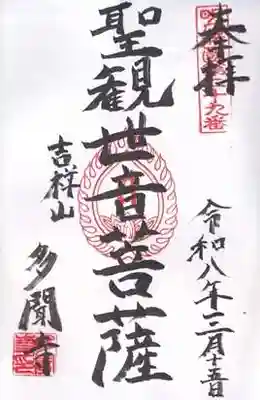 奉拝
聖観世音菩薩
吉祥山
多聞寺
令和八年三月十五日